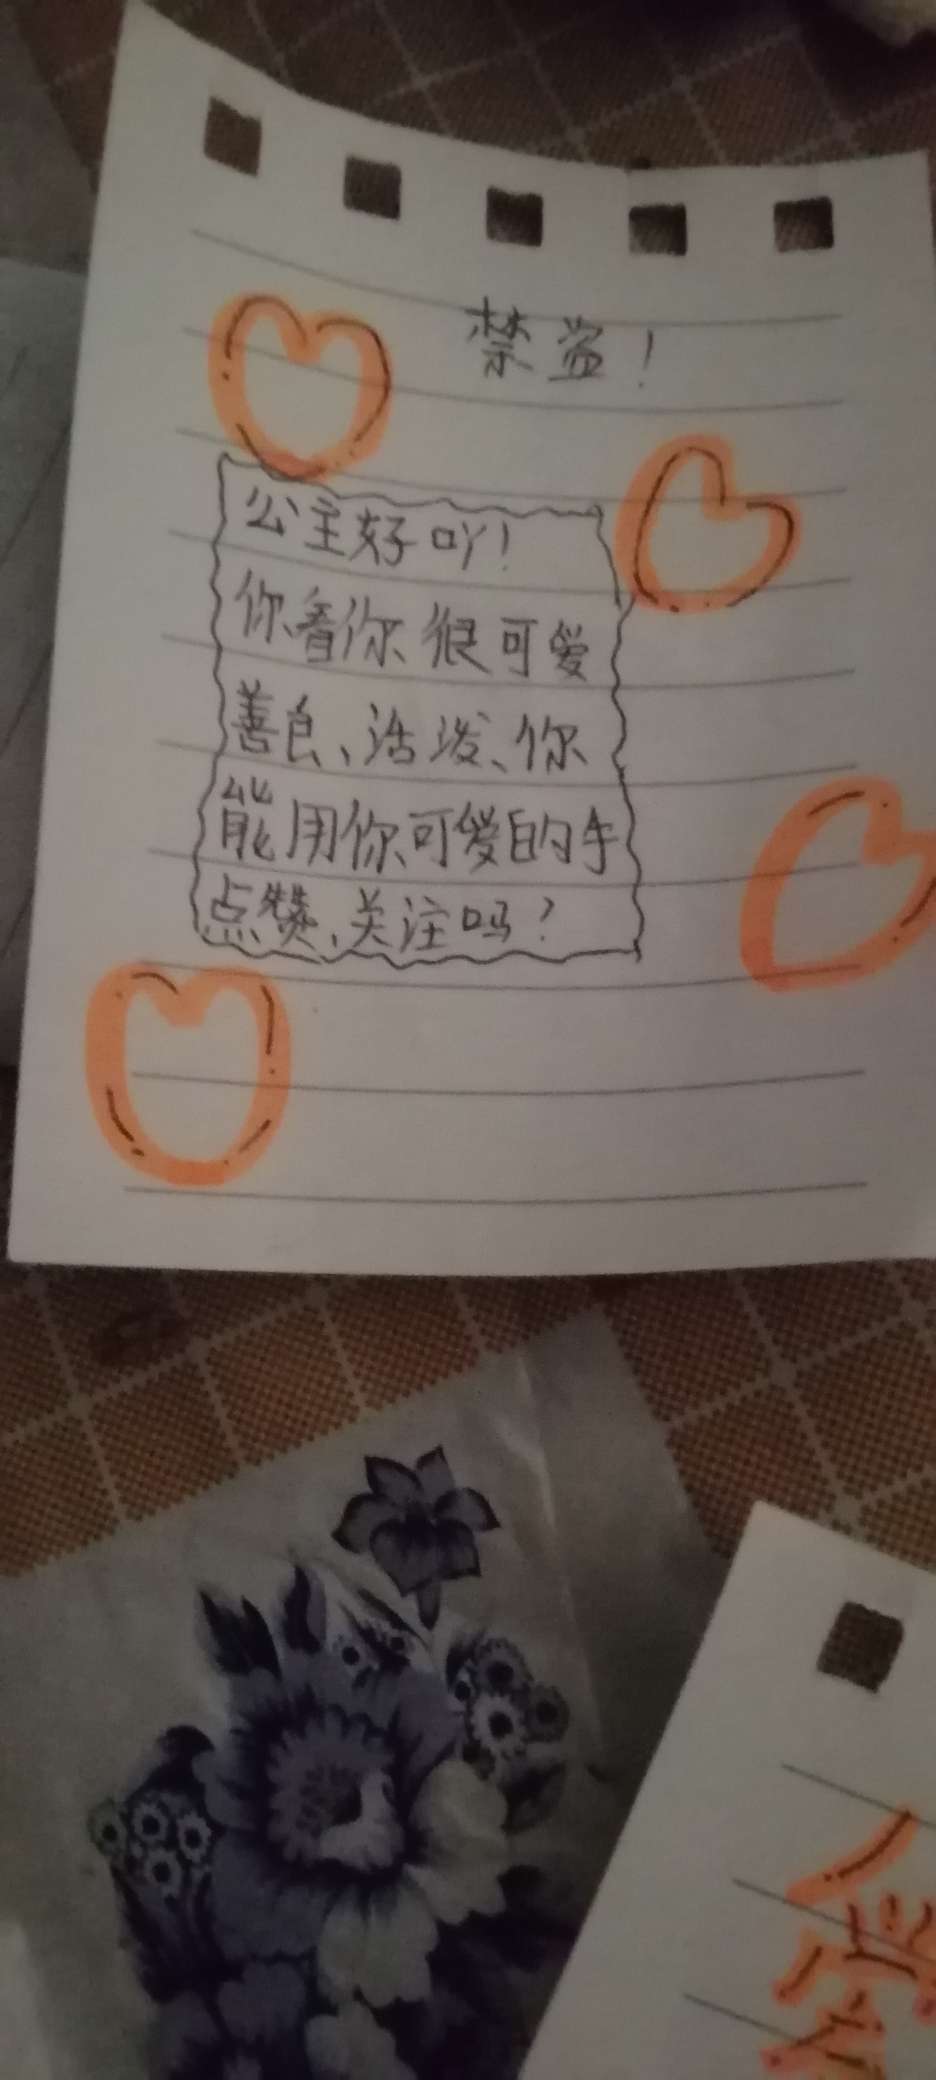 禁盗！
公主好吖！
你看你很可爱
善良、活泼、你
能用你可爱的手
点赞、关注吗？